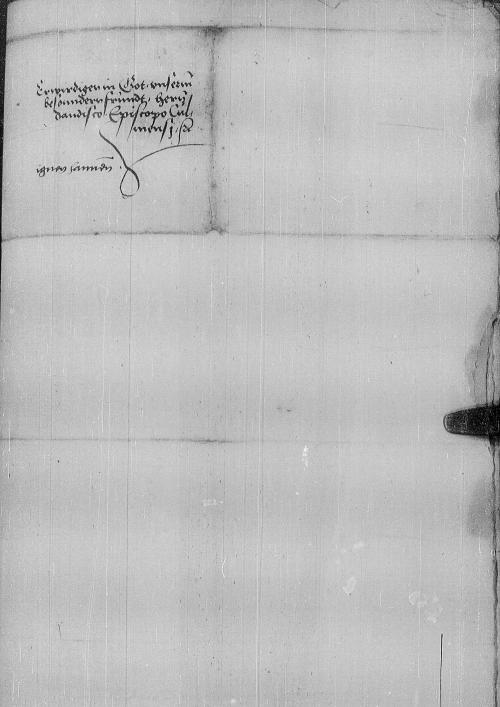 Erwirdigen in Got unserm
besoundern frundt, hern
dantisco Episcopo Cul,
mensj, &c
ignen hannen